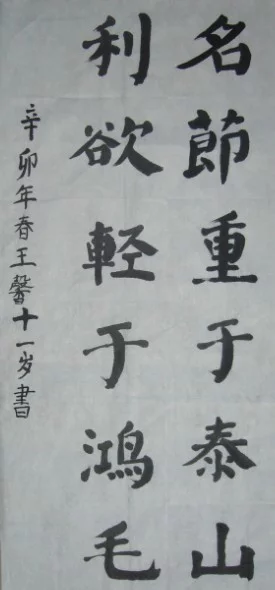 名節重于泰山
利欲輕于鴻毛
辛卯年春王馨十一岁書